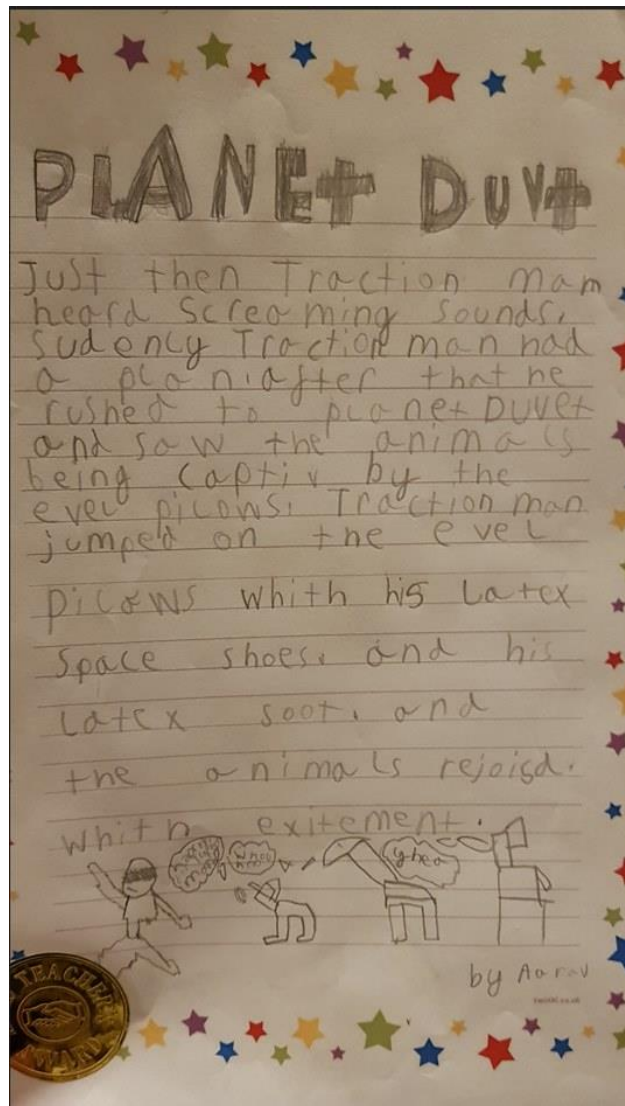 PLANEt DUVt
Just then Traction mam
heard Screaming Sounds.
Sudency Traction man had
a plan. after that he
rushed to planet DUVet
and saw the animals
being captiv by the
evel picows. Traction man
jumped on the evel
picows whith his Latex
Space shoes. and his
Latex soot. and
the animals rejoisd.
whith exitement.
yhea
by Aarav
TEACHER
AWARD